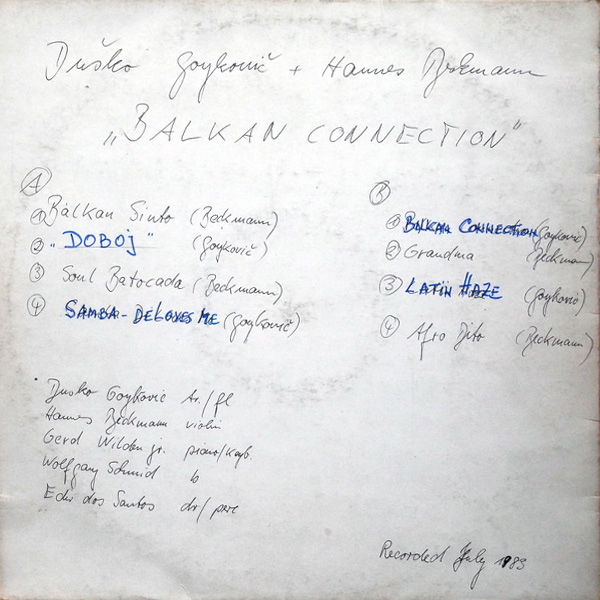 Duško Goykovič + Hannes Beckmann
„BALKAN CONNECTION"
A
1 Balkan Sinto (Beckmann)
2 „DOBOJ" (Goykovič)
3 Soul Batocada (Beckmann)
4 SAMBA - DE LOVES ME (Goykovič)
B
1 BALKAN CONNECTION (Goykovič)
2 Grandma (Beckmann)
3 LATIN HAZE (Goykovič)
4 Afro Dito (Beckmann)
Dusko Goykovic tr./fl
Hannes Beckmann violin
Gerd Wilden jr. piano/keyb.
Wolfgang Schmid b
Edir dos Santos dr/perc
Recorded July 1983